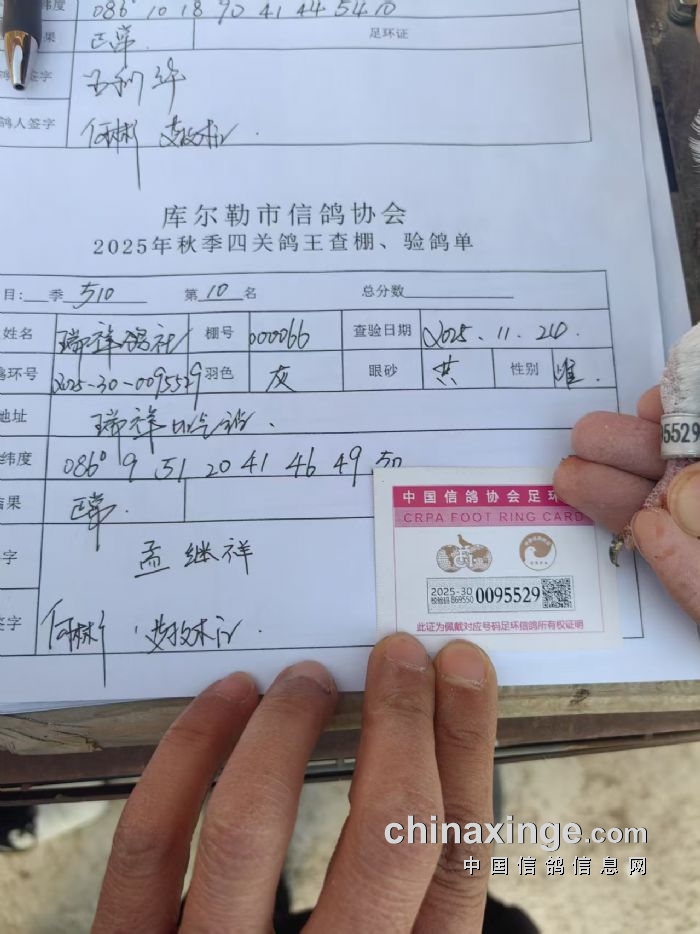 纬度 086° 10 18 90 41 44 54.10
果 正常 足环证
鸽 签字
鸽人签字 何彬
库尔勒市信鸽协会
2025年秋季四关鸽王查棚、验鸽单
目:__季 510 第 10 名 总分数
姓名 瑞祥鸽社 棚号 000066 查验日期 2025.11.20
环号 2025-30-0095529 羽色 灰 眼砂 黄 性别 雄.
地址 瑞祥
纬度 086° 9 51 20 41 46 49 50
结果 正常.
字 孟继祥
签字 何彬
中国信鸽协会足环
CRPA FOOT RING CARD
2025-30
校验码 B69550
0095529
此证为佩戴对应号码足环信鸽所有权证明
095529
chinaxinge.com
中国信鸽信息网